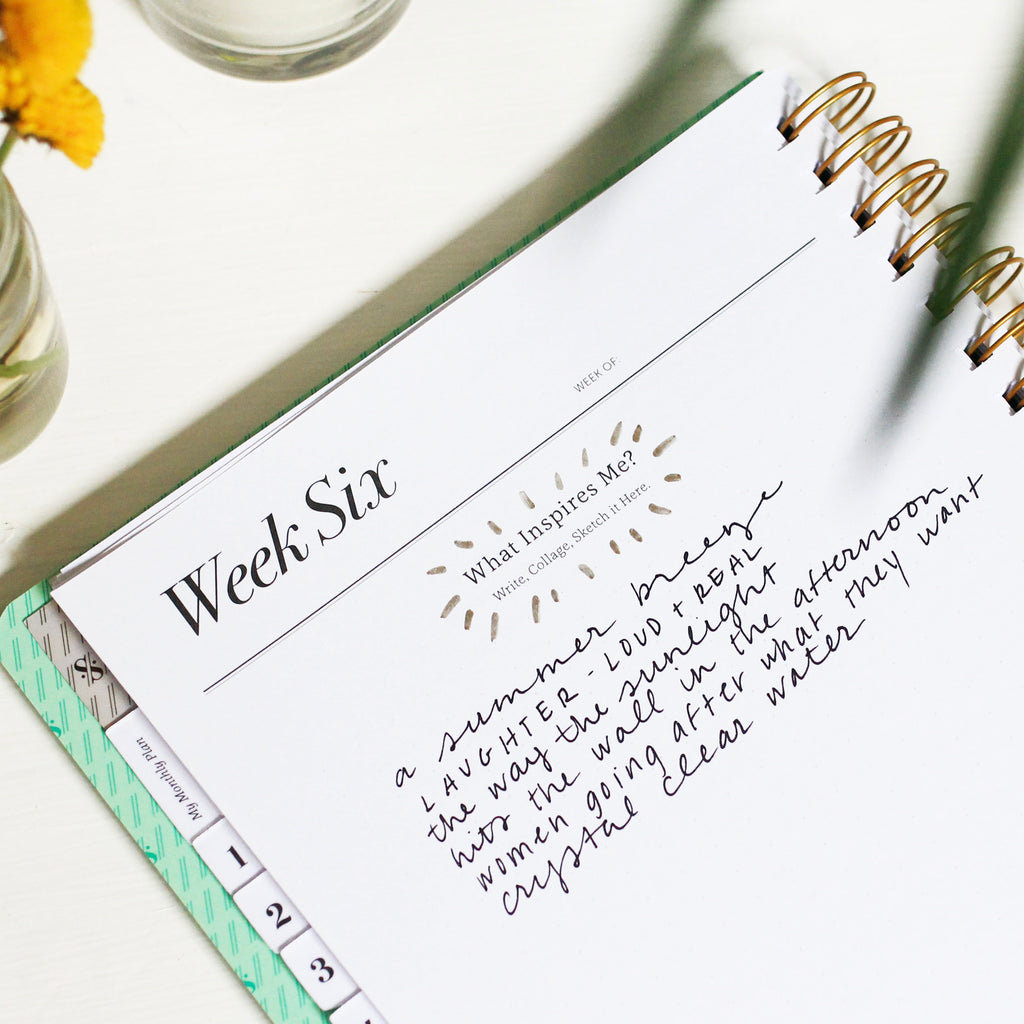 WEEK OF:
Week Six
What Inspires Me?
Write, Collage, Sketch it Here.
a summer breeze
LAUGHTER - LOUD + REAL
the way the sunlight
hits the wall in the afternoon
women going after what they want
crystal clear water
My Monthly Plan
1
2
3